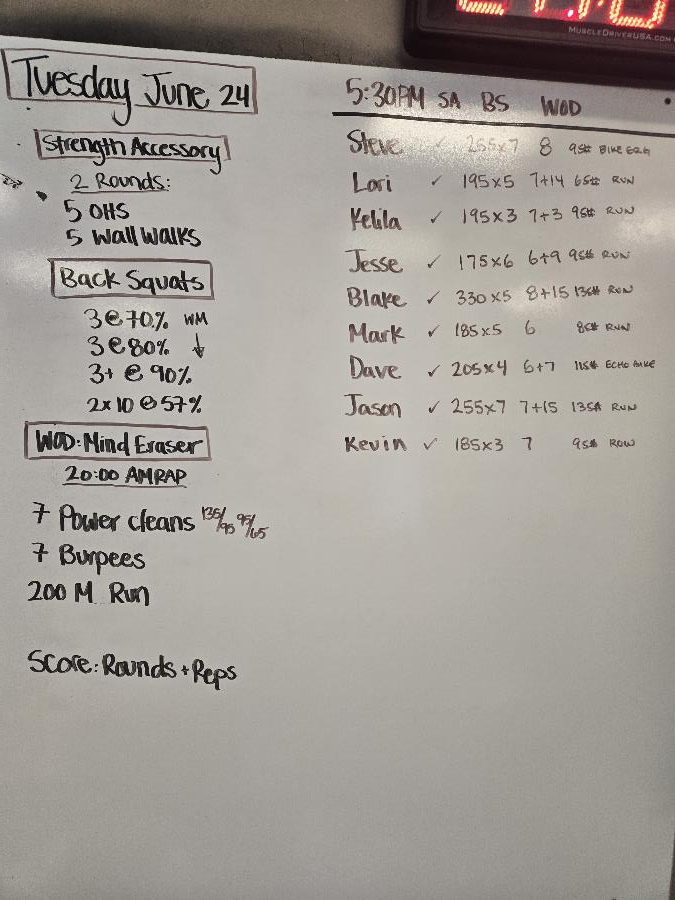 MUSCLEDRIVERUSA.COM
Tuesday June 24
Strength Accessory
2 Rounds:
5 OHS
5 Wall Walks
Back Squats
3@70% WM
3@80% ↓
3+ @ 90%
2x10@57%
WOD: Mind Eraser
20:00 AMRAP
7 Power cleans 135/95 95/65
7 Burpees
200 M Run
Score: Rounds + Reps
5:30PM SA BS WOD
Steve ✓ 255x7 8 95# BIKE ERG
Lori ✓ 195x5 7+14 65# RUN
Kelila ✓ 195x3 7+3 95# RUN
Jesse ✓ 175x6 6+9 95# RUN
Blake ✓ 330x5 8+15 135# RUN
Mark ✓ 185x5 6 85# RUN
Dave ✓ 205x4 6+7 115# ECHO BIKE
Jason ✓ 255x7 7+15 135# RUN
Kevin ✓ 185x3 7 95# ROW